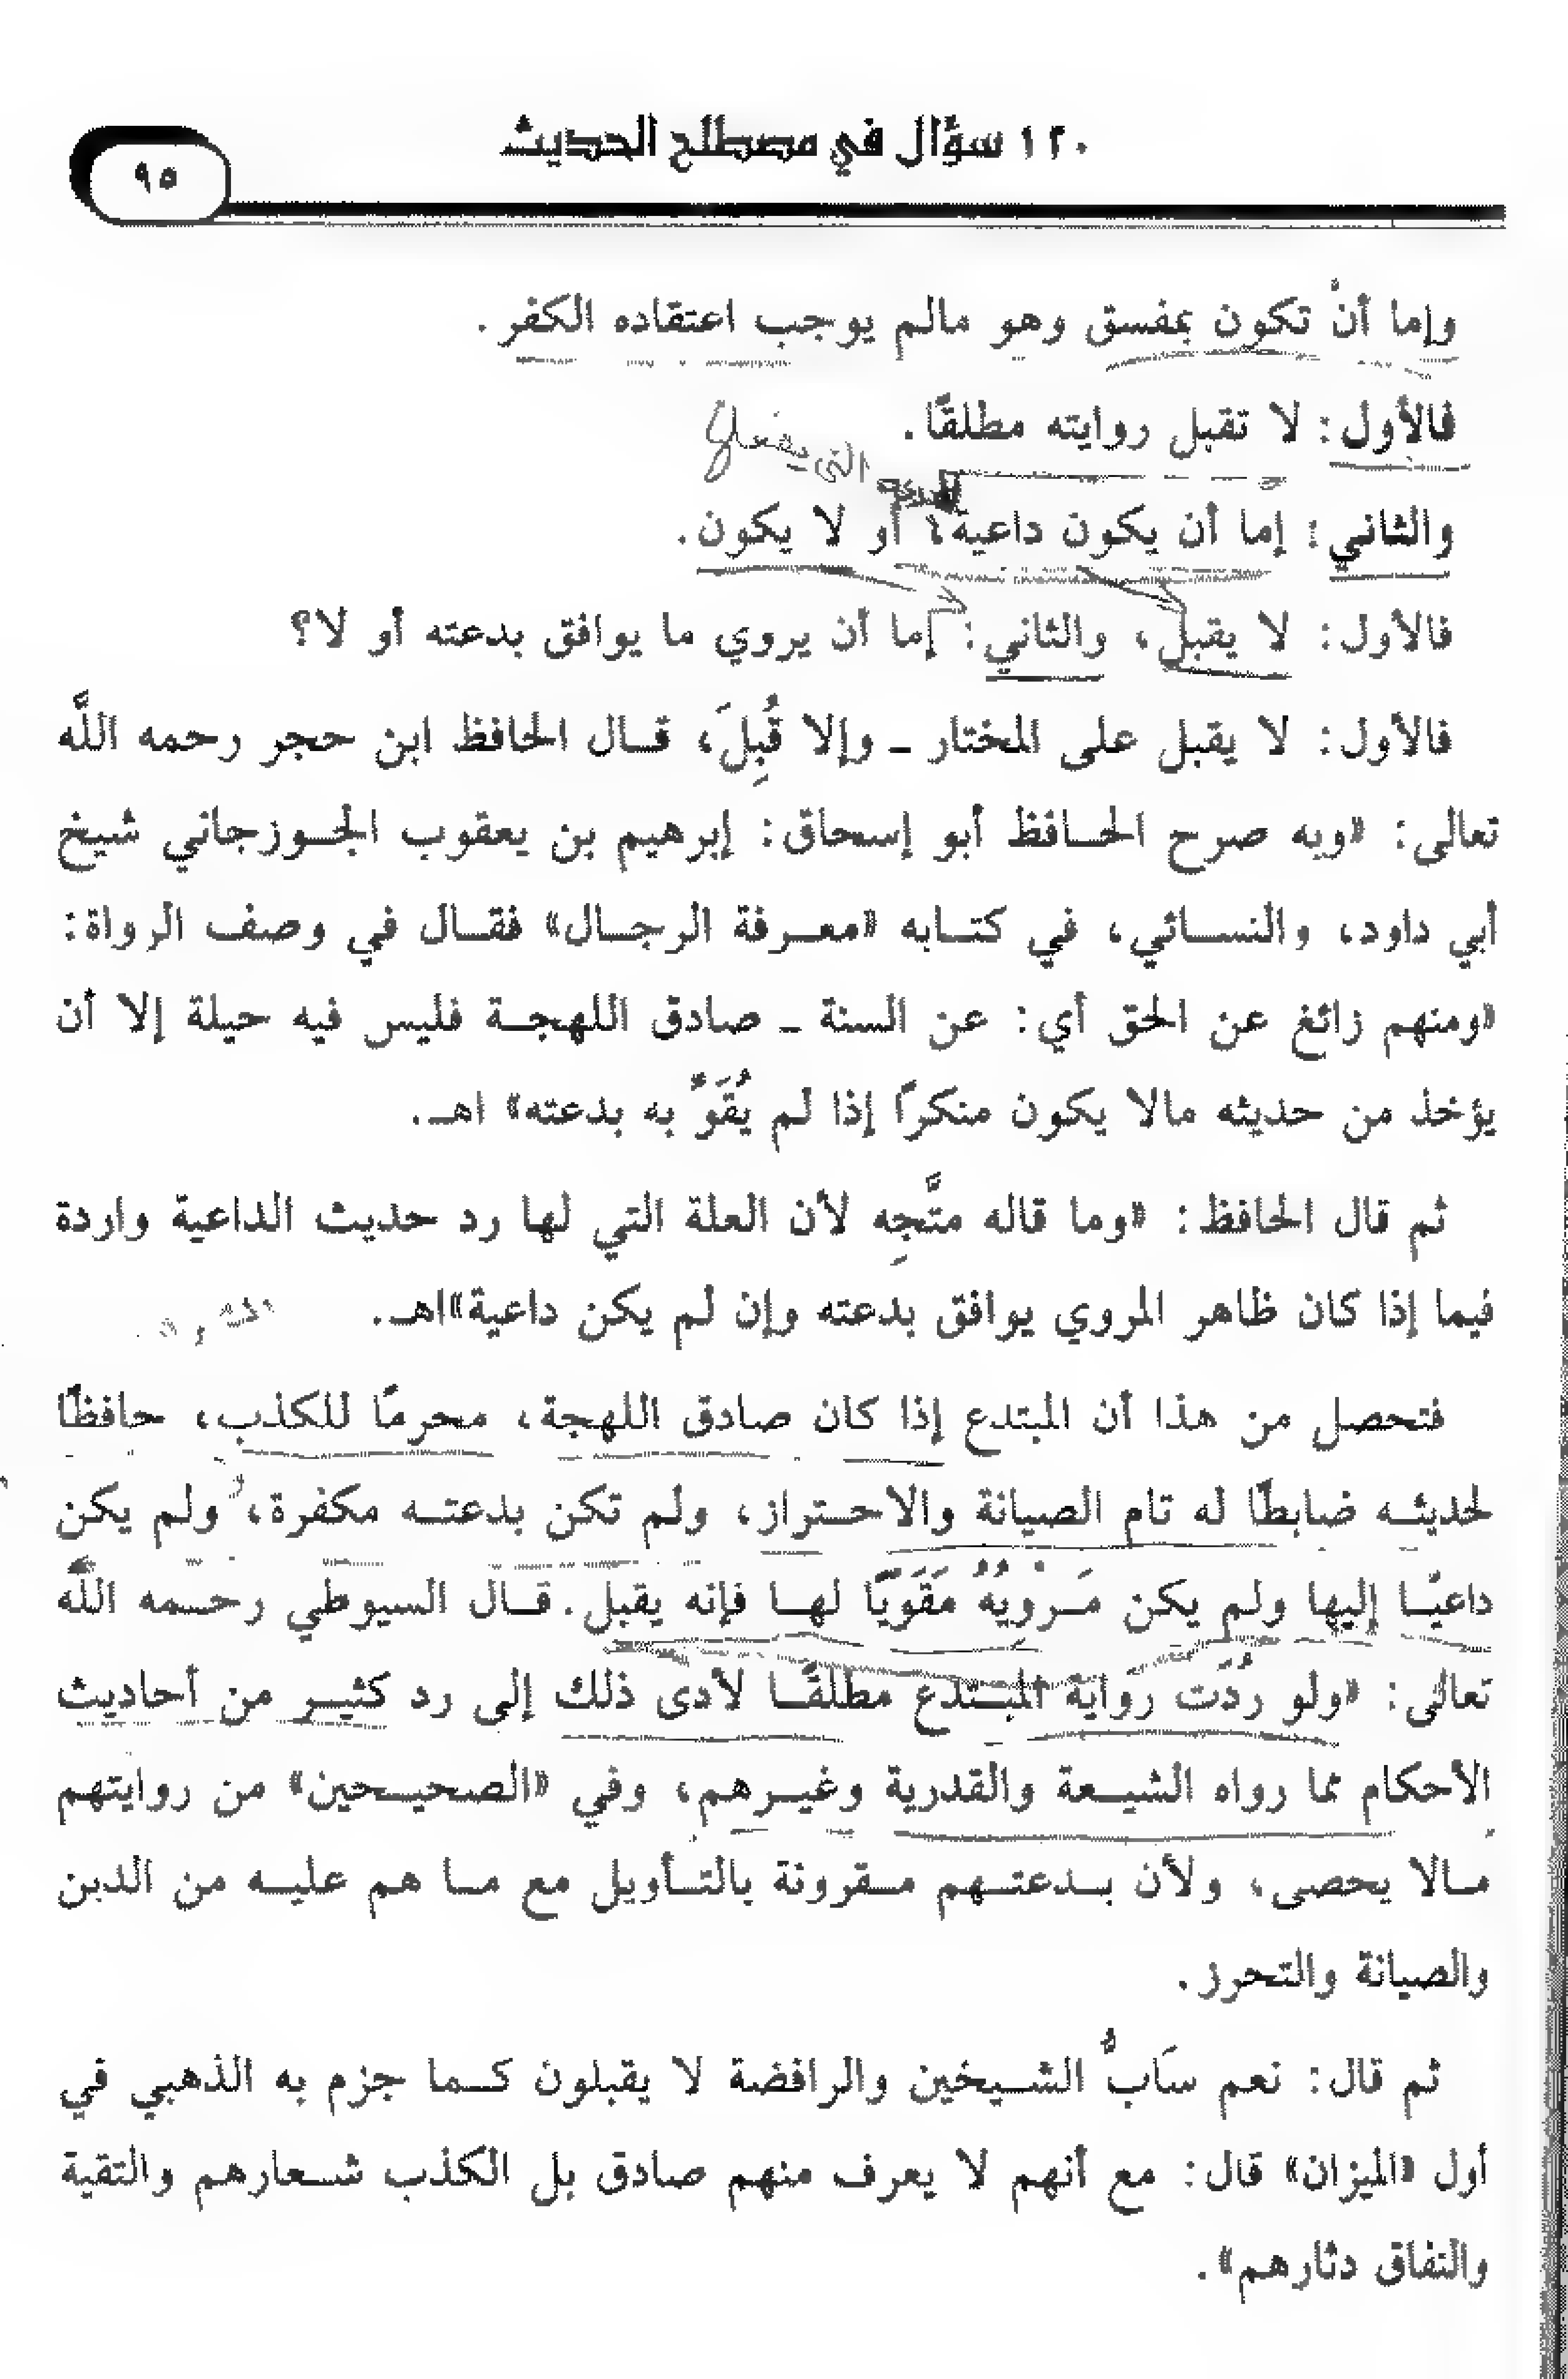 ١٢٠ سؤال في مصطلح الحديث
٩٥
وإما أنْ تكون بمفسق وهو مالم يوجب اعتقاده الكفر.
فالأول: لا تقبل روايته مطلقًا.
التي يفعلها
للبدعة
والثاني: إما أن يكون داعية، أو لا يكون.
فالأول: لا يقبل، والثاني: إما أن يروي ما يوافق بدعته أو لا؟
فالأول: لا يقبل على المختار ـ وإلا قُبِلَ، قـال الحافظ ابن حجر رحمه اللَّه
تعالى: «وبه صرح الحـافظ أبو إسحاق: إبرهيم بن يعقوب الجـوزجاني شيخ
أبي داود، والنسـائي، في كتـابه «معـرفة الرجـال» فقـال في وصف الرواة:
«ومنهم زائغ عن الحق أي: عن السنة ـ صادق اللهجـة فليس فيه حيلة إلا أن
يؤخذ من حديثه مالا يكون منكرًا إذا لم يُقَوَّ به بدعته» اهـ.
ثم قال الحافظ: «وما قاله متَّجِه لأن العلة التي لها رد حديث الداعية واردة
فيما إذا كان ظاهر المروي يوافق بدعته وإن لم يكن داعية»اهـ.
فتحصل من هذا أن المبتدع إذا كان صادق اللهجة، محرمًا للكذب، حافظًا
لحديثـه ضابطًا له تام الصيانة والاحـتراز، ولم تكن بدعتـه مكفرة، ولم يكن
داعيًـا إليها ولم يكن مَـرْويُهُ مَقَوِّيًا لهـا فإنه يقبل. قـال السيوطي رحـمه اللَّه
تعالى: «ولو رُدَت رواية المبـتدع مطلقًـا لأدى ذلك إلى رد كثيـر من أحاديث
الأحكام مما رواه الشيـعة والقدرية وغيـرهم، وفي «الصحيـحين» من روايتهم
مـالا يحصى، ولأن بـدعتـهم مـقرونة بالتـأويل مع مـا هم عليـه من الدين
والصيانة والتحرز.
ثم قال: نعم سَابُّ الشـيخين والرافضة لا يقبلون كـما جزم به الذهبي في
أول «الميزان» قال: مع أنهم لا يعرف منهم صادق بل الكذب شـعارهم والتقية
والنفاق دثارهم».